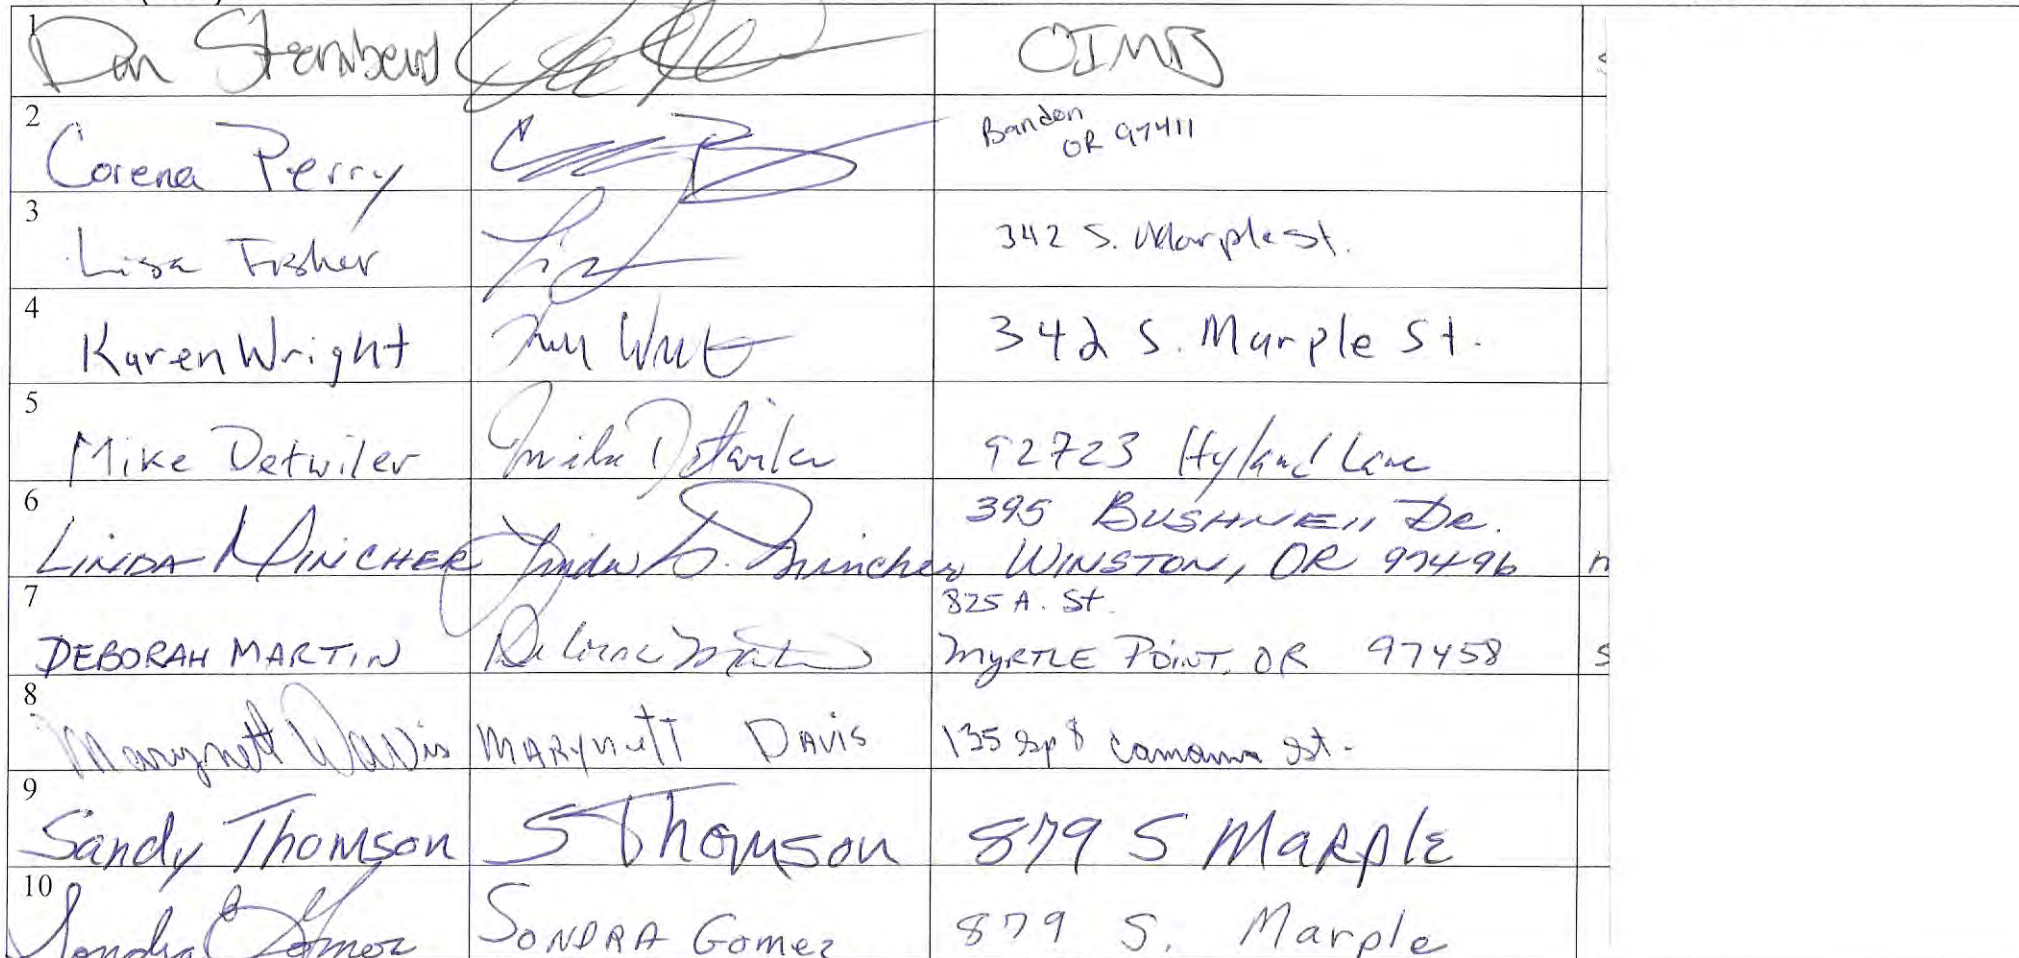 1 Dan Sternberg OIMB
2 Corena Perry Bandon
OR 97411
3 Lisa Fisher 342 S. Marple St.
4 Karen Wright 342 S. Marple St.
5 Mike Detwiler Mike Detwiler 92723 Hyland Lane
6 395 BUSHNEll DR.
LINDA MINCHER Linda S. Mincher WINSTON, OR 97496
7 825 A. St.
DEBORAH MARTIN Deborah Martin MYRTLE POINT, OR 97458
8 Marynett Davis MARYNETT DAVIS 135 Sp 8 Camann st.
9 Sandy Thomson S Thomson 879 S Marple
10 Sondra Gomez SONDRA Gomez 879 S. Marple